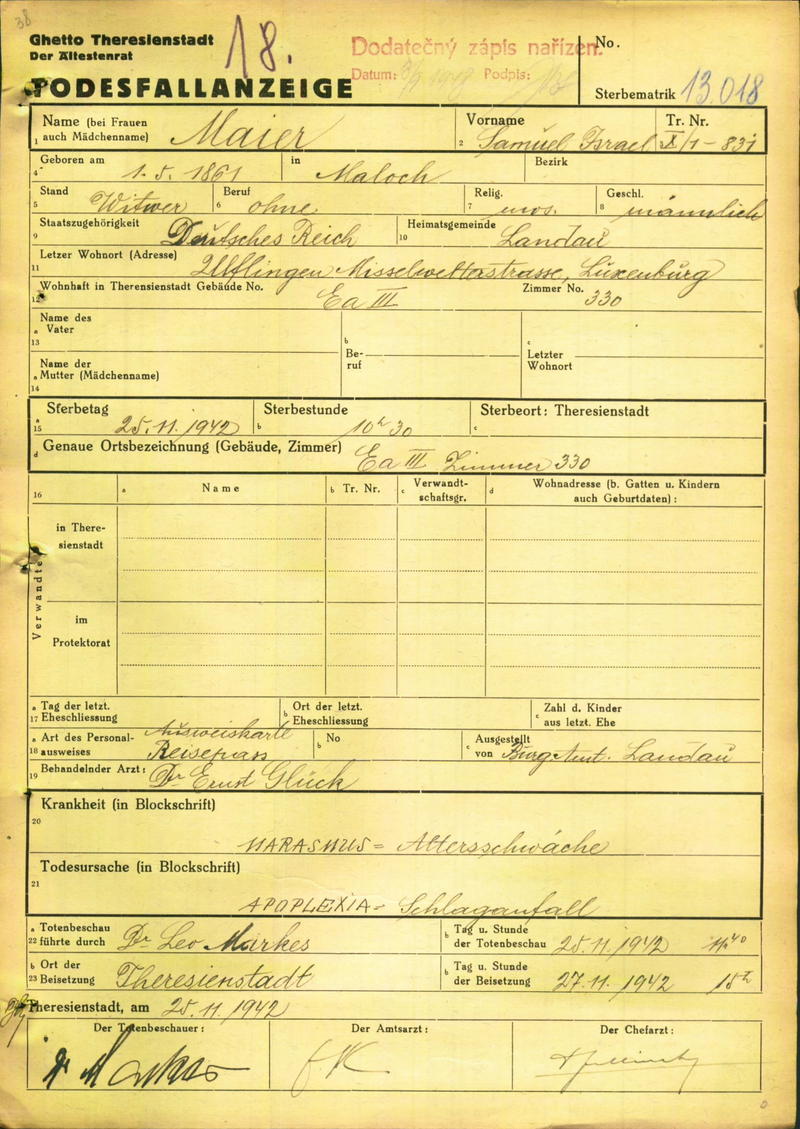 38
Ghetto Theresienstadt
Der Ältestenrat
18.
Dodatečný zápis nařízen.
Datum: Podpis:
No.
TODESFALLANZEIGE
Sterbematrik 13.018
Name (bei Frauen auch Mädchenname) Maier
1
Vorname Samuel Israel
2
Tr. Nr. X/1-831
3
Geboren am 1.5. 1861
4
in Maloch
Bezirk
Stand Witwer
5
Beruf ohne
6
Relig. mos.
7
Geschl. männlich
8
Staatszugehörigkeit Deutsches Reich
9
Heimatsgemeinde Landau
10
Letzer Wohnort (Adresse) Ulflingen Misselwetterstrasse, Luxenburg
11
Wohnhaft in Therensienstadt Gebäude No. Ea III
12
Zimmer No. 330
Name des
a Vater
13
b
Be-
ruf
c
Letzter
Wohnort
Name der
a Mutter (Mädchenname)
14
a
15
Sferbetag 25.11.1942
b Sterbestunde 10h 30
c Sterbeort: Theresienstadt
d Genaue Ortsbezeichnung (Gebäude, Zimmer) Ea III Zimmer 330
16
a Name
b Tr. Nr.
c Verwandt-
schaftsgr.
d Wohnadresse (b. Gatten u. Kindern
auch Geburtdaten) :
Verwandte
in There-
sienstadt
im
Protektorat
a Tag der letzt.
17 Eheschliessung
b Ort der letzt.
Eheschliessung
c Zahl d. Kinder
aus letzt. Ehe
a Art des Personal-
18 ausweises
Ausweiskarte
Reisepass
b No
c Ausgestellt
von Burg. Amt. Landau
19 Behandelnder Arzt: Dr Ernst Glück
Krankheit (in Blockschrift)
20
MARASMUS = Altersschwäche
Todesursache (in Blockschrift)
21
APOPLEXIA = Schlaganfall
a Totenbeschau
22 führte durch Dr Leo Markes
b Tag u. Stunde
der Totenbeschau 25.11.1942 14.40
b Ort der
23 Beisetzung Theresienstadt
b Tag u. Stunde
der Beisetzung 27.11.1942 15h
Theresienstadt, am 25.11.1942
Der Totenbeschauer :
Der Amtsarzt :
Der Chefarzt :
Dr Markes